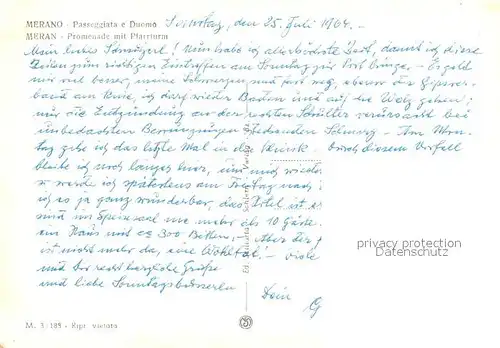 MERANO - Passeggiata e Duomo
MERAN - Promenade mit Pfarrturm
Samstag, den 25. Juli 1964.
Mein liebes ! Nun habe ich allerhöchste Zeit, damit ich diese
Zeilen zum richtigen Eintreffen am Sonntag zur Post bringe. - Es geht
mir viel besser, meine Schmerzen sind fast weg, ebenso der Gipsver-
band am Knie, ich darf wieder Baden und auf die Weg gehen;
nur die Entzündung an der rechten Schulter verursacht bei
unbedachten Bewegungen stechenden Schmerz. - Am Mon-
tag gehe ich das letzte Mal in die Klinik. Durch diesen Vorfall
bleibe ich noch länger hier, und
werde ich spätestens am Freitag nach
ist es ja ganz wunderbar, das Hotel ist
sind im Speisesaal nie mehr als 10 Gäste,
ein Haus mit ca 300 Betten, - Aber der
ist nicht mehr da, eine Wohltat! - Viele
und recht herzliche Grüße
und liebe Sonntagsbusserln
Dein G
privacy protection
Datenschutz
M. 3/185 - Ripr. vietata